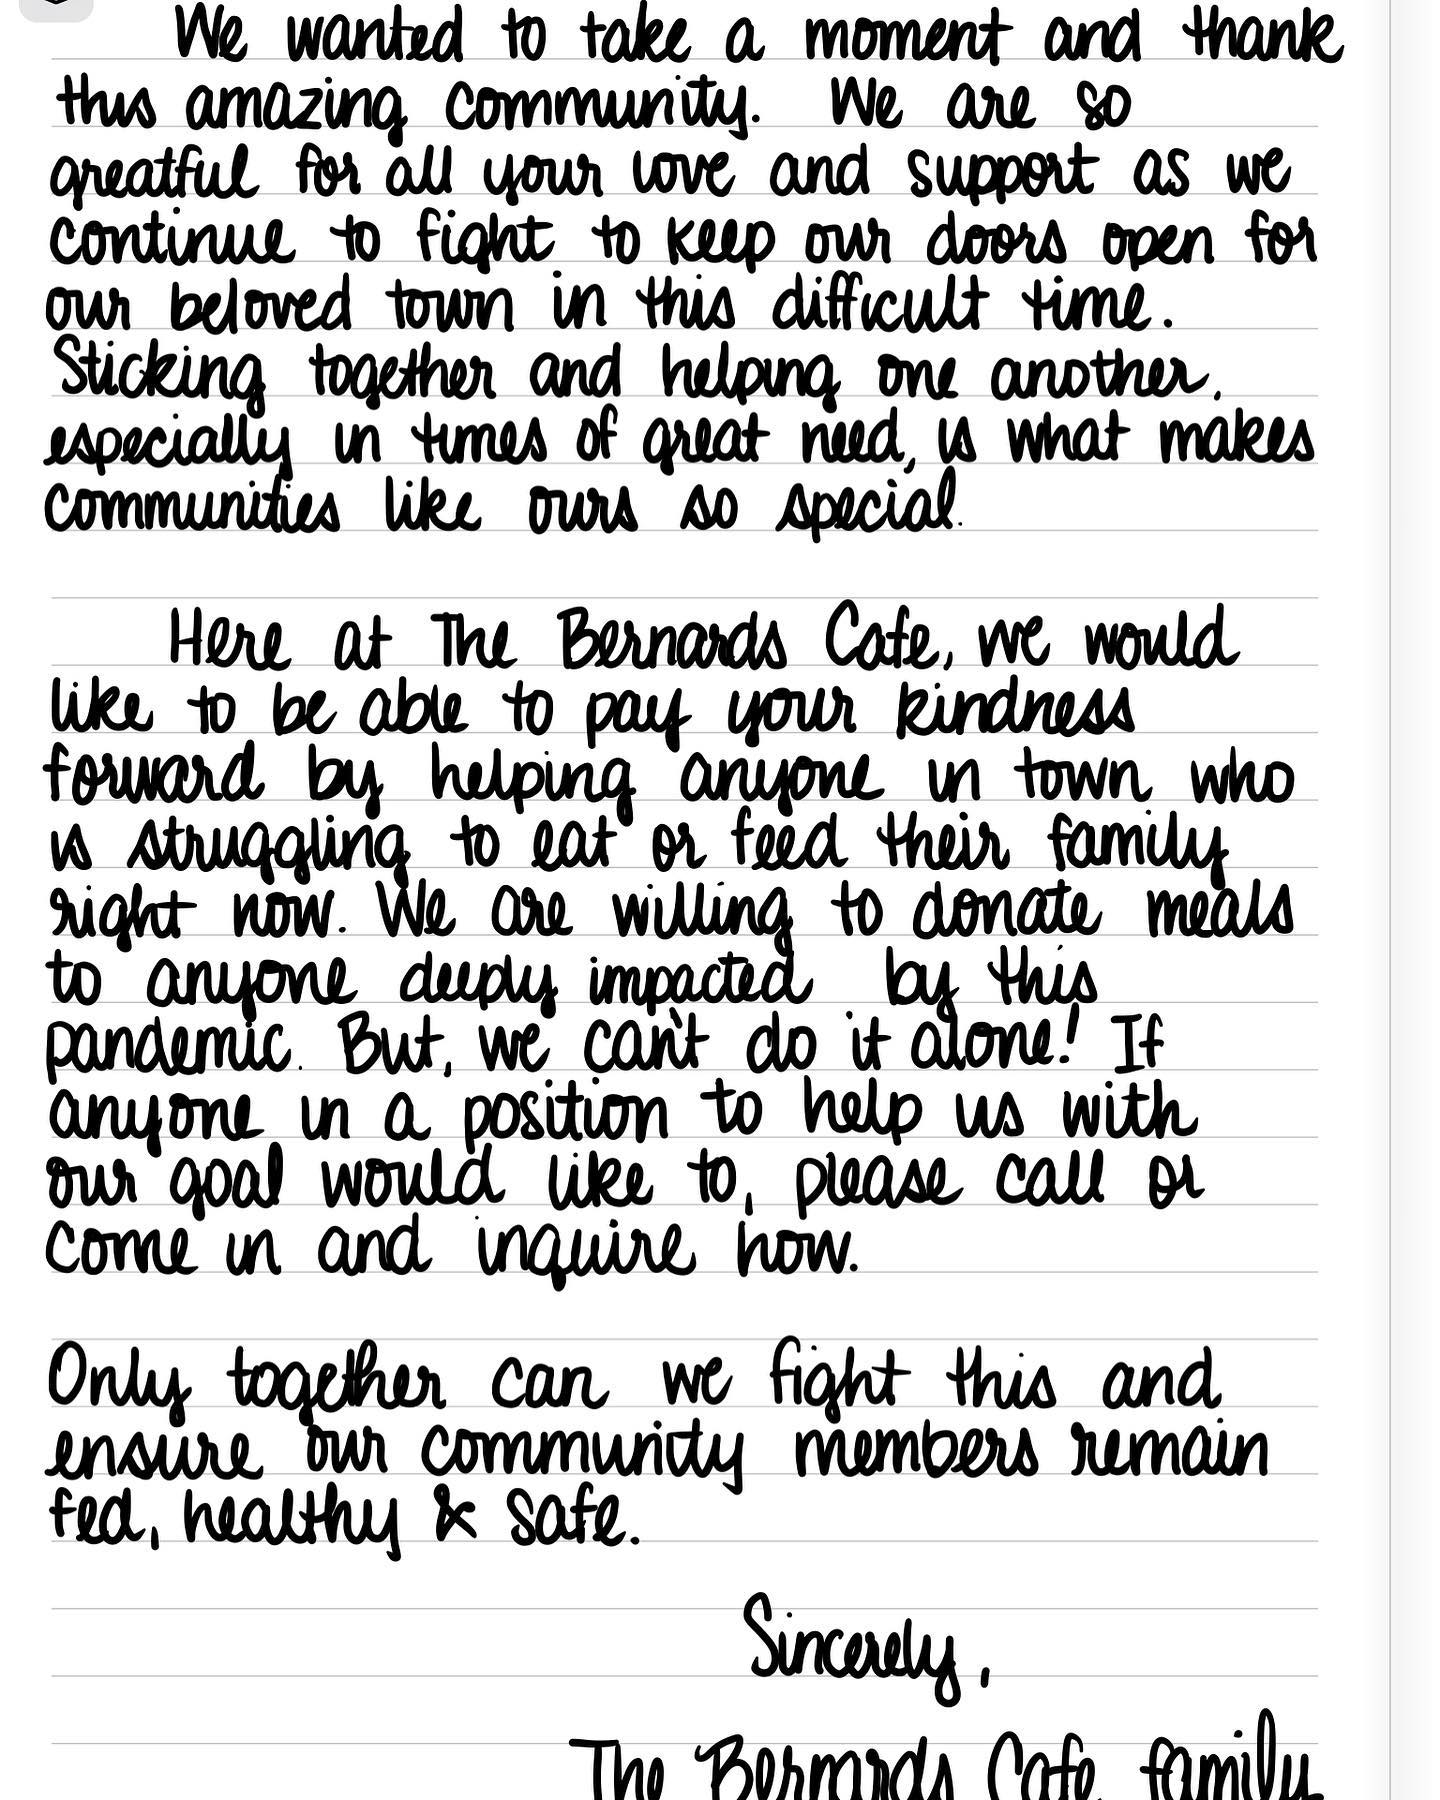 We wanted to take a moment and thank
this amazing community. We are so
greatful for all your love and support as we
continue to fight to keep our doors open for
our beloved town in this difficult time.
Sticking together and helping one another,
especially in times of great need, is what makes
communities like ours so special.
Here at The Bernards Cafe, we would
like to be able to pay your kindness
forward by helping anyone in town who
is struggling to eat or feed their family
right now. We are willing to donate meals
to anyone deeply impacted by this
pandemic. But, we can't do it alone! If
anyone in a position to help us with
our goal would like to, please call or
come in and inquire how.
Only together can we fight this and
ensure our community members remain
fed, healthy & safe.
Sincerely,
The Bernards Cafe family